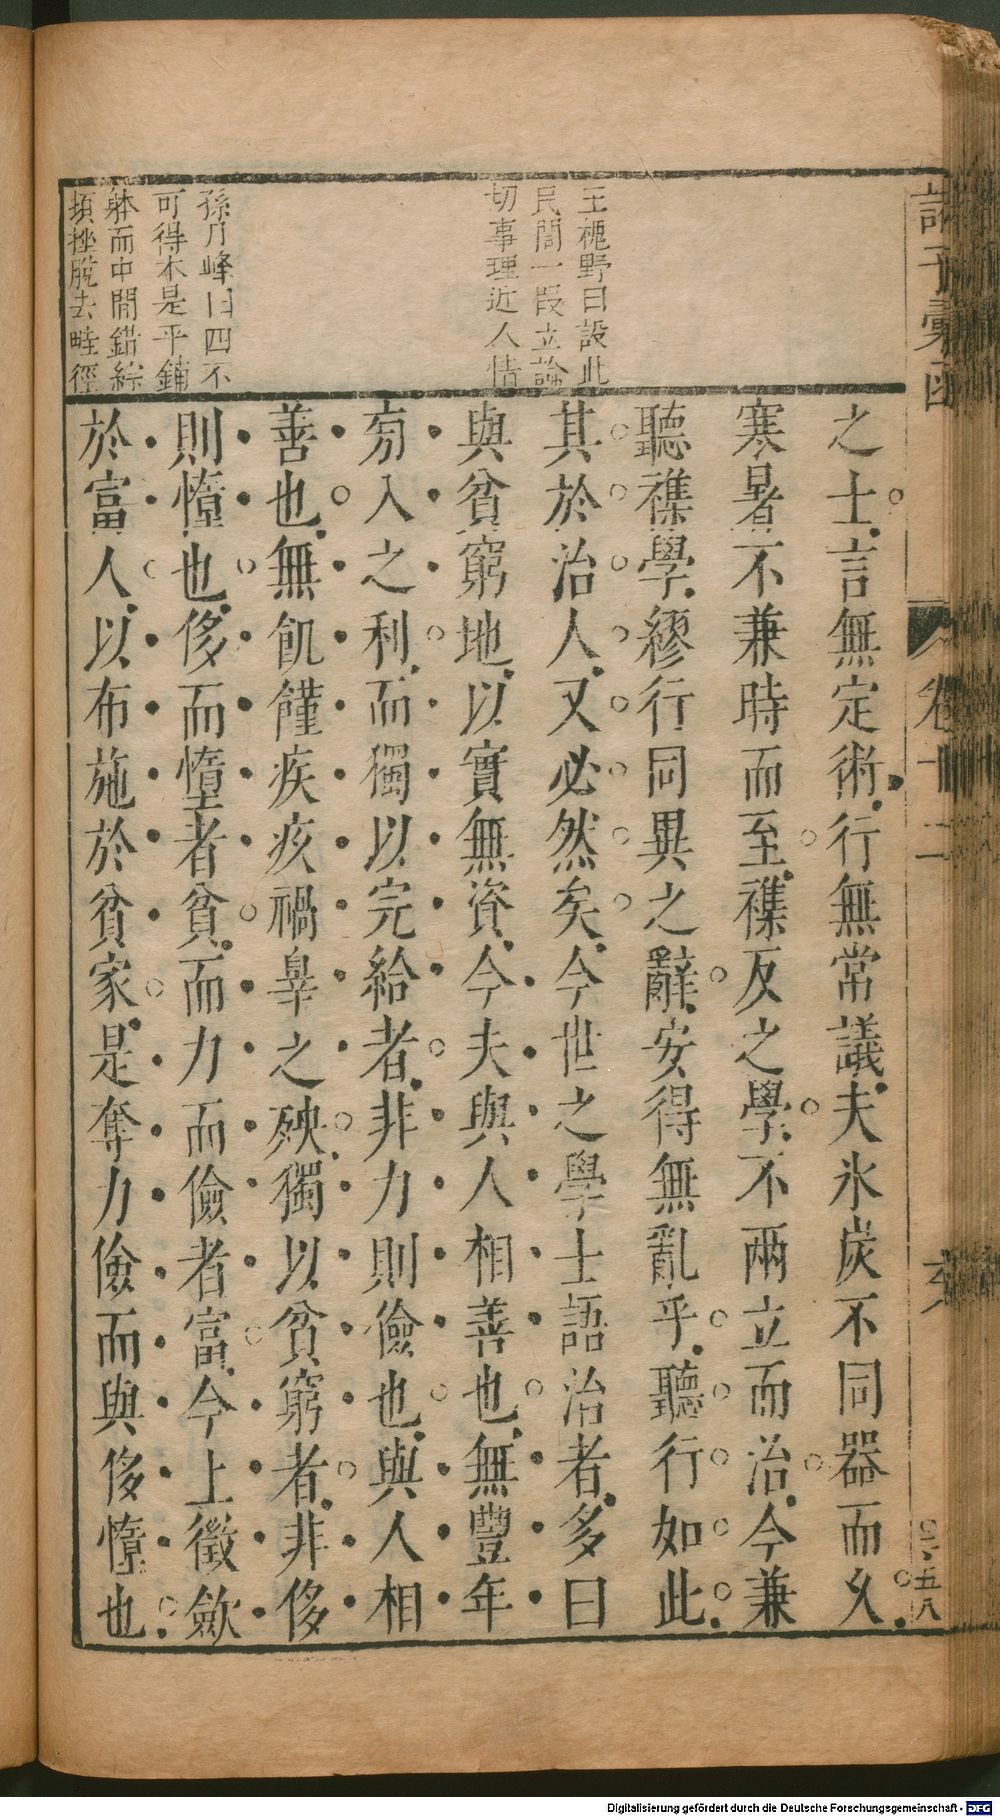 諸子彙函
卷十二
五八
王槐野曰設此
民間一段立論
切事理近人情
孫月峰曰四不
可得本是平鋪
躰而中間錯綜
頓挫脫去畦徑
之士言無定術行無常議夫氷炭不同器而乆
寒暑不兼時而至襍反之學不兩立而治今兼
聽襍學繆行同異之辭安得無亂乎聽行如此
其於治人又必然矣今世之學士語治者多曰
與貧窮地以實無資今夫與人相善也無豐年
旁入之利而獨以完給者非力則儉也與人相
善也無飢饉疾疚禍辠之殃獨以貧窮者非侈
則惰也侈而惰者貧而力而儉者富今上徵斂
於富人以布施於貧家是奪力儉而與侈惰也
Digitalisierung gefördert durch die Deutsche Forschungsgemeinschaft - DFG